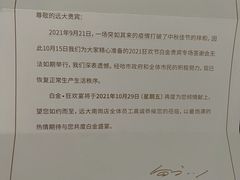 尊敬的远大贵宾：
2021年9月21日，一场突如其来的疫情打破了中秋佳节的祥和，因
此10月15日我们为大家精心准备的2021狂欢节白金贵宾专场答谢会无
法如期举行，我们深表遗憾。经哈市政府和全体市民的积极努力，现已
恢复正常生产生活秩序。
白金·狂欢宴将于2021年10月29日（星期五）再度为您倾情献上，
望您如约而至，远大南岗店全体员工真诚恭候您的莅临，以最饱满的
热情期待与您共度白金盛宴。